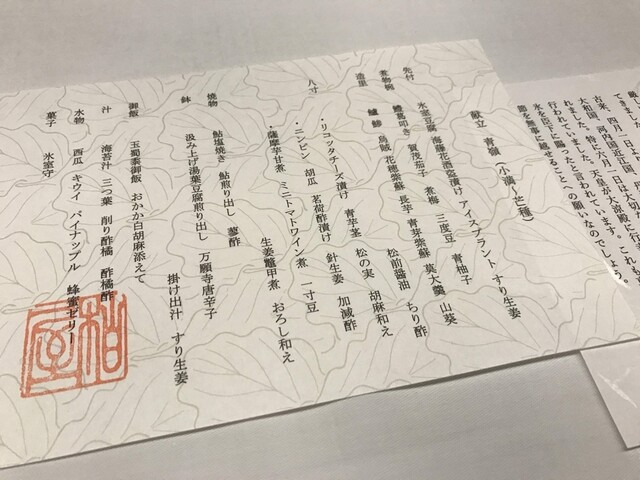 献立 青嵐(小満~芒種)
先付 氷室豆腐 海藤花酒盗漬け アイスプラント すり生姜
煮物椀 鱧葛叩き 賀茂茄子 煮梅 三度豆 青柚子
造里 鱸 鯵 烏賊 花穂紫蘇 長芋 青芽紫蘇 莫大 山葵
松前醤油 ちり酢
八寸 ・リコッタチーズ漬け 青芋茎 松の実 胡麻和え
・ニンビン 胡瓜 茗荷酢漬け 針生姜 加減酢
・薩摩芋甘煮 ミニトマトワイン煮 一寸豆
生姜鼈甲煮 おろし和え
焼物 鮎塩焼き 鮎煎り出し 蓼酢
鉢 汲み上げ湯葉豆腐煎り出し 万願寺唐辛子
掛け出汁 すり生姜
御飯 玉蜀黍御飯 おかか白胡麻添えて
汁 海苔汁 三つ葉 削り酢橘 酢橘酢
水物 西瓜 キウイ パイナップル 蜂蜜ゼリー
菓子 氷室守
てきました。
古来、四月一日よ
大和国、河内国、近江国
れました。特に六月一日は大切
行われていました。天皇が大宮殿に行
氷を臣下に賜ったと言われています。これ
節を無事に越せることへの願いなのでしょう。